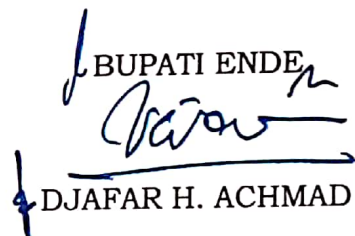 BUPATI ENDE
DJAFAR H. ACHMAD